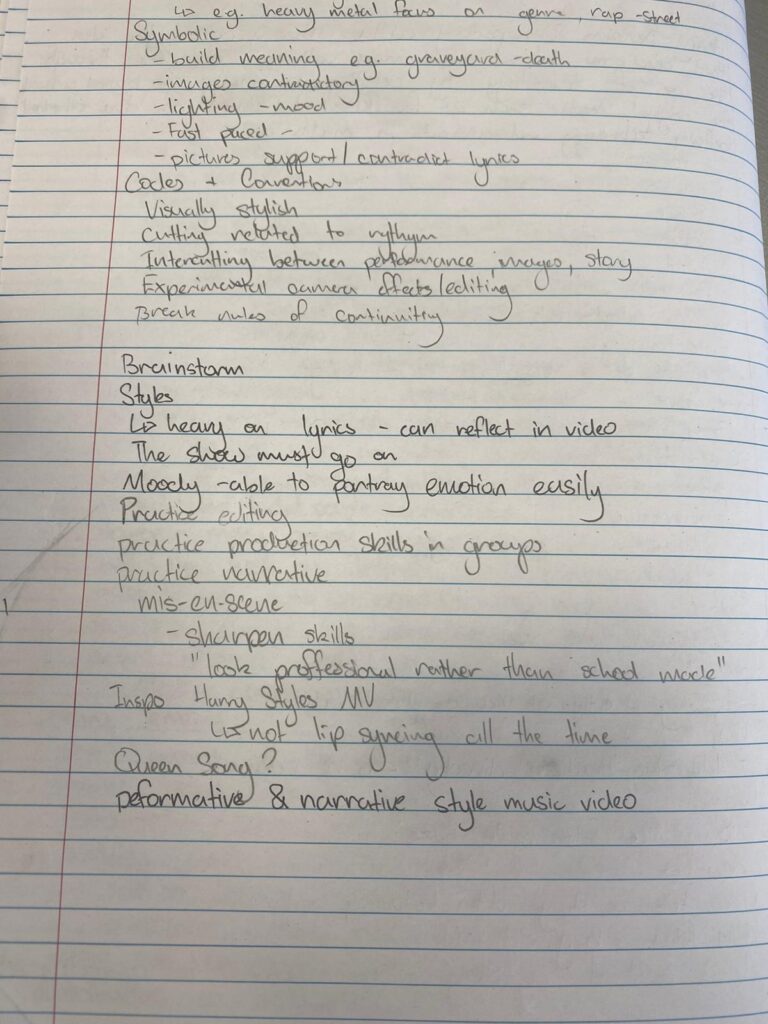 ↳ e.g. heavy metal focus on genre, rap - street
Symbolic
- build meaning eg. graveyard - death
- images contradictory
- lighting - mood
- Fast paced -
- pictures support / contradict lyrics
Codes + Conventions
Visually stylish
Cutting related to rythym
Intercutting between performance, images, story
Experimental camera effects/editing
Break rules of continuitiy
Brainstorm
Styles
↳ heavy on lyrics - can reflect in video
The show must go on
Moody - able to portray emotion easily
Practice editing
practice production skills in groups
practice narrative
mis-en-scene
- sharpen skills
"look proffessional rather than school made"
Inspo Harry Styles MV
↳ not lip syncing all the time
Queen Song?
peformative & narrative style music video